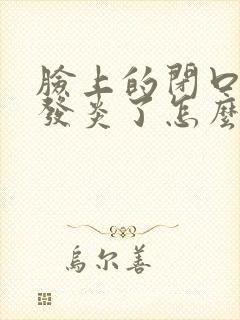 臉上的閉口
發炎了怎麼
烏尔善